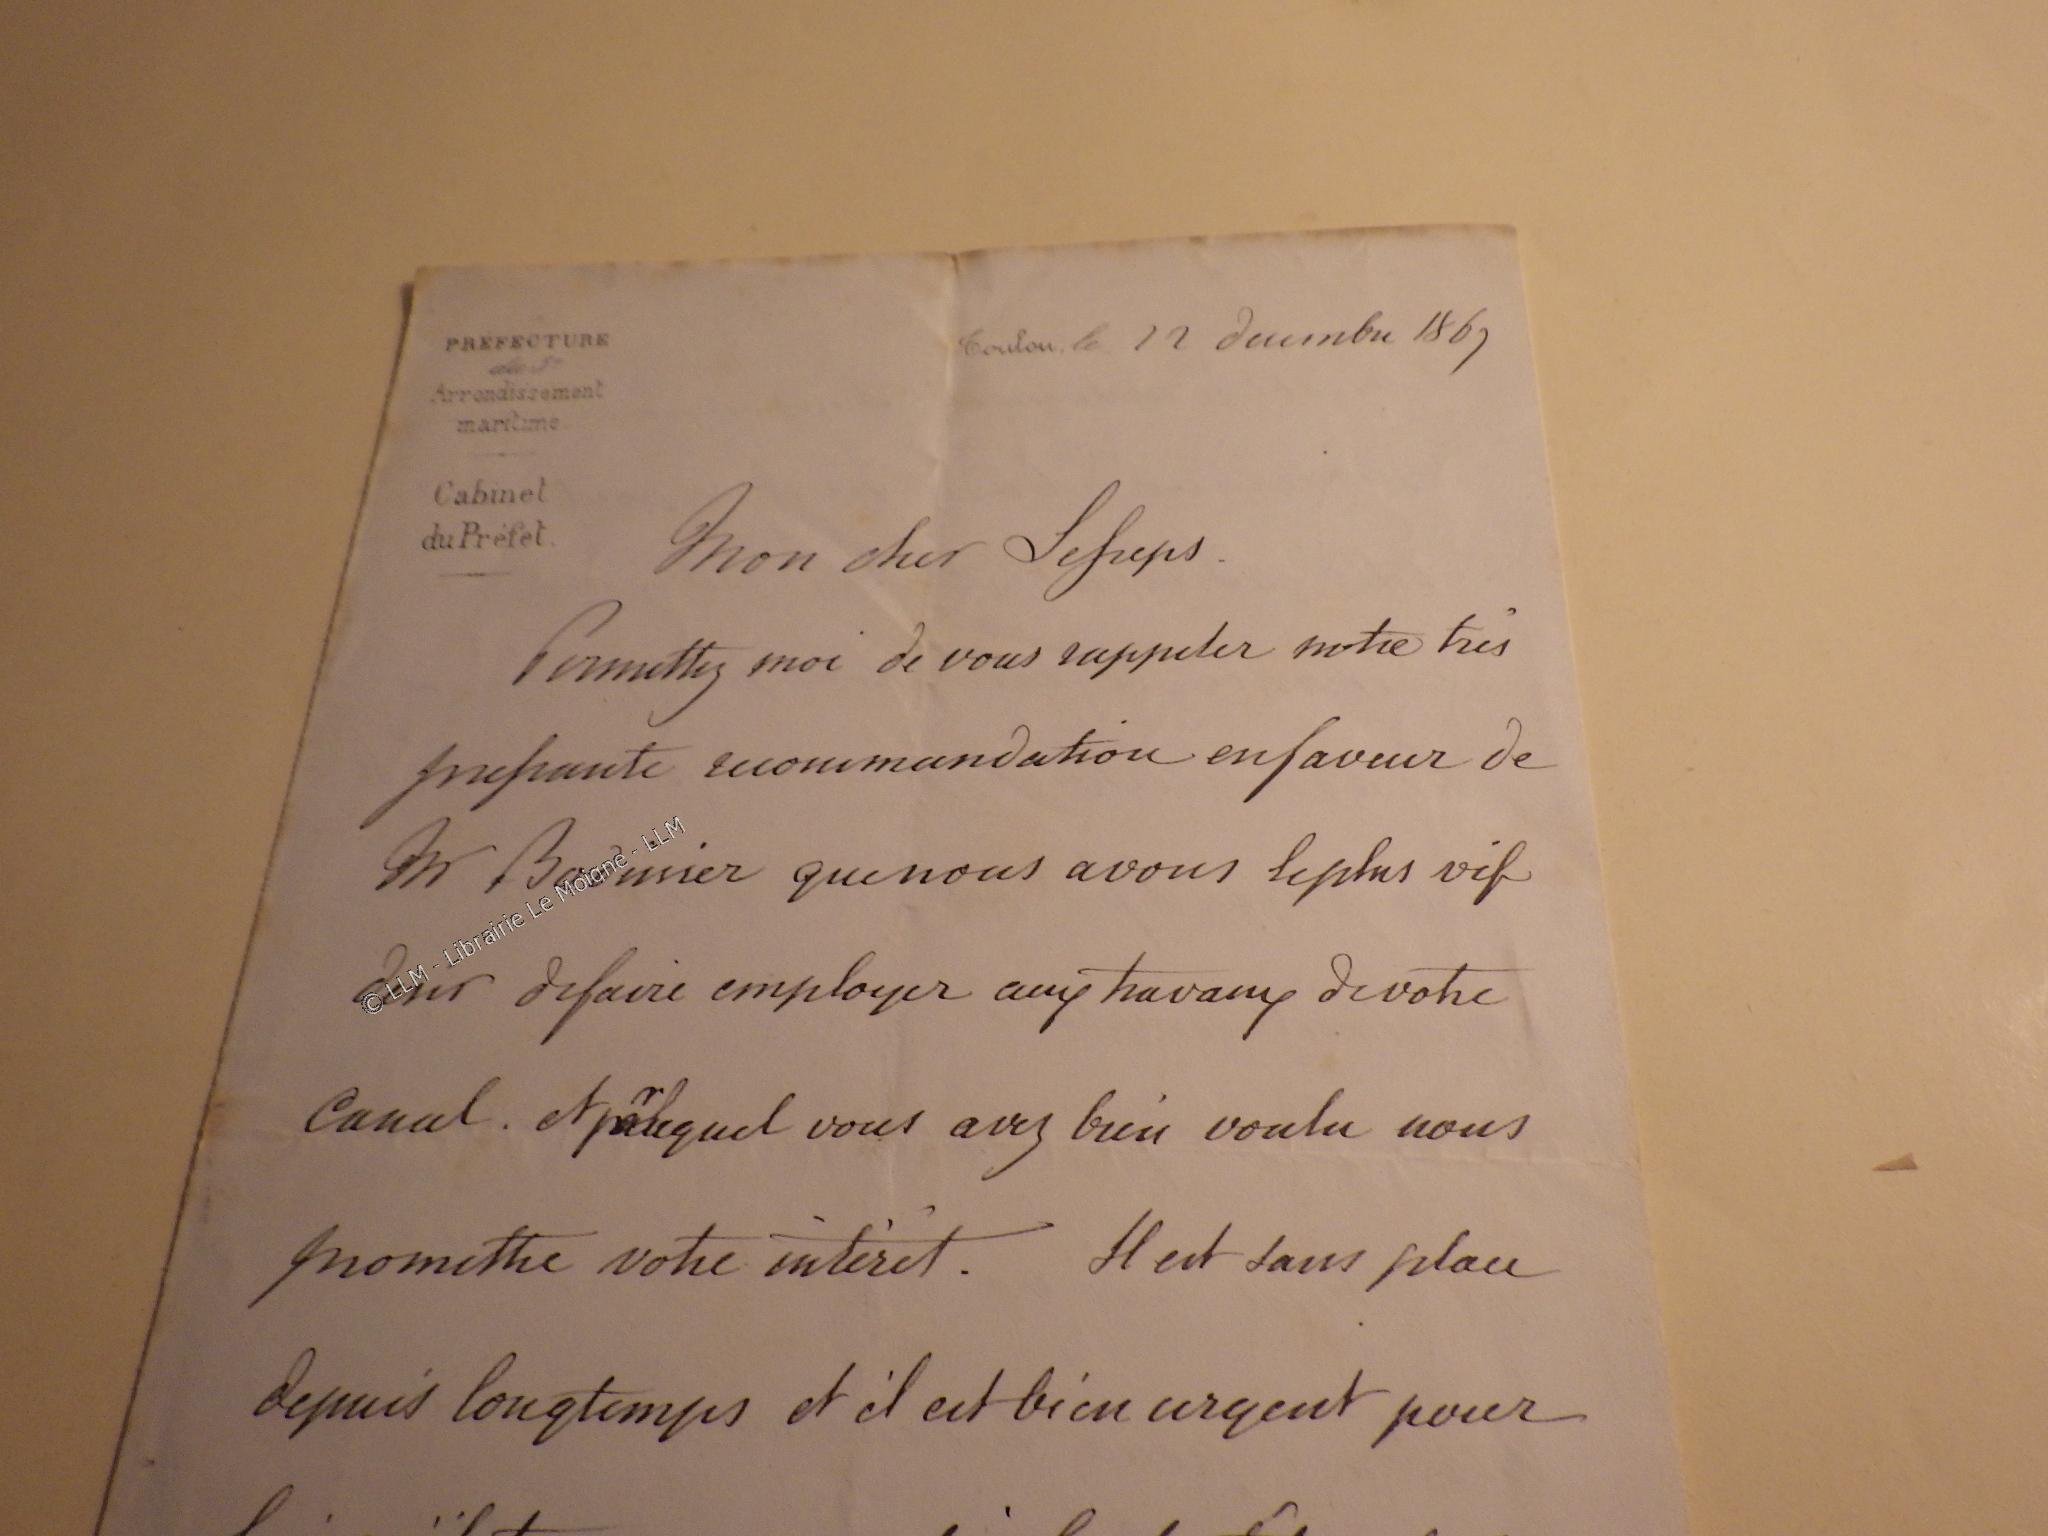 PRÉFECTURE
du 5e
Arrondissement
maritime.
Cabinet
du Préfet.
Toulon, le 12 decembre 1867
Mon cher Lesseps.
Permettez moi de vous rappeler notre très
pressante recommandation en faveur de
Mr que nous avons le plus vif
désir de faire employer aux travaux de votre
Canal. et pr lequel vous avez bien voulu nous
promettre votre intérêt. Il est sans place
depuis longtemps et il est bien urgent pour
© LLM - Librairie Le Moigne - LLM